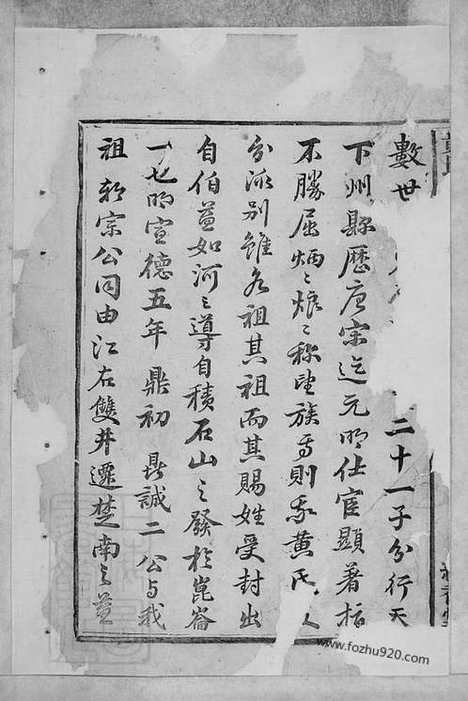 數世
二十一子分行天
下州縣歷唐宋迄元明仕宦顯著指
不勝屈炳炳烺烺称望族焉則我黄氏
分派别雖各祖其祖而其賜姓受封出
自伯益如河之導自積石山之發於崑崙
一也明宣德五年 鼎初 鼎誠二公与我
祖 宗公同由江右雙井遷楚南之益
www.fozhu920.com